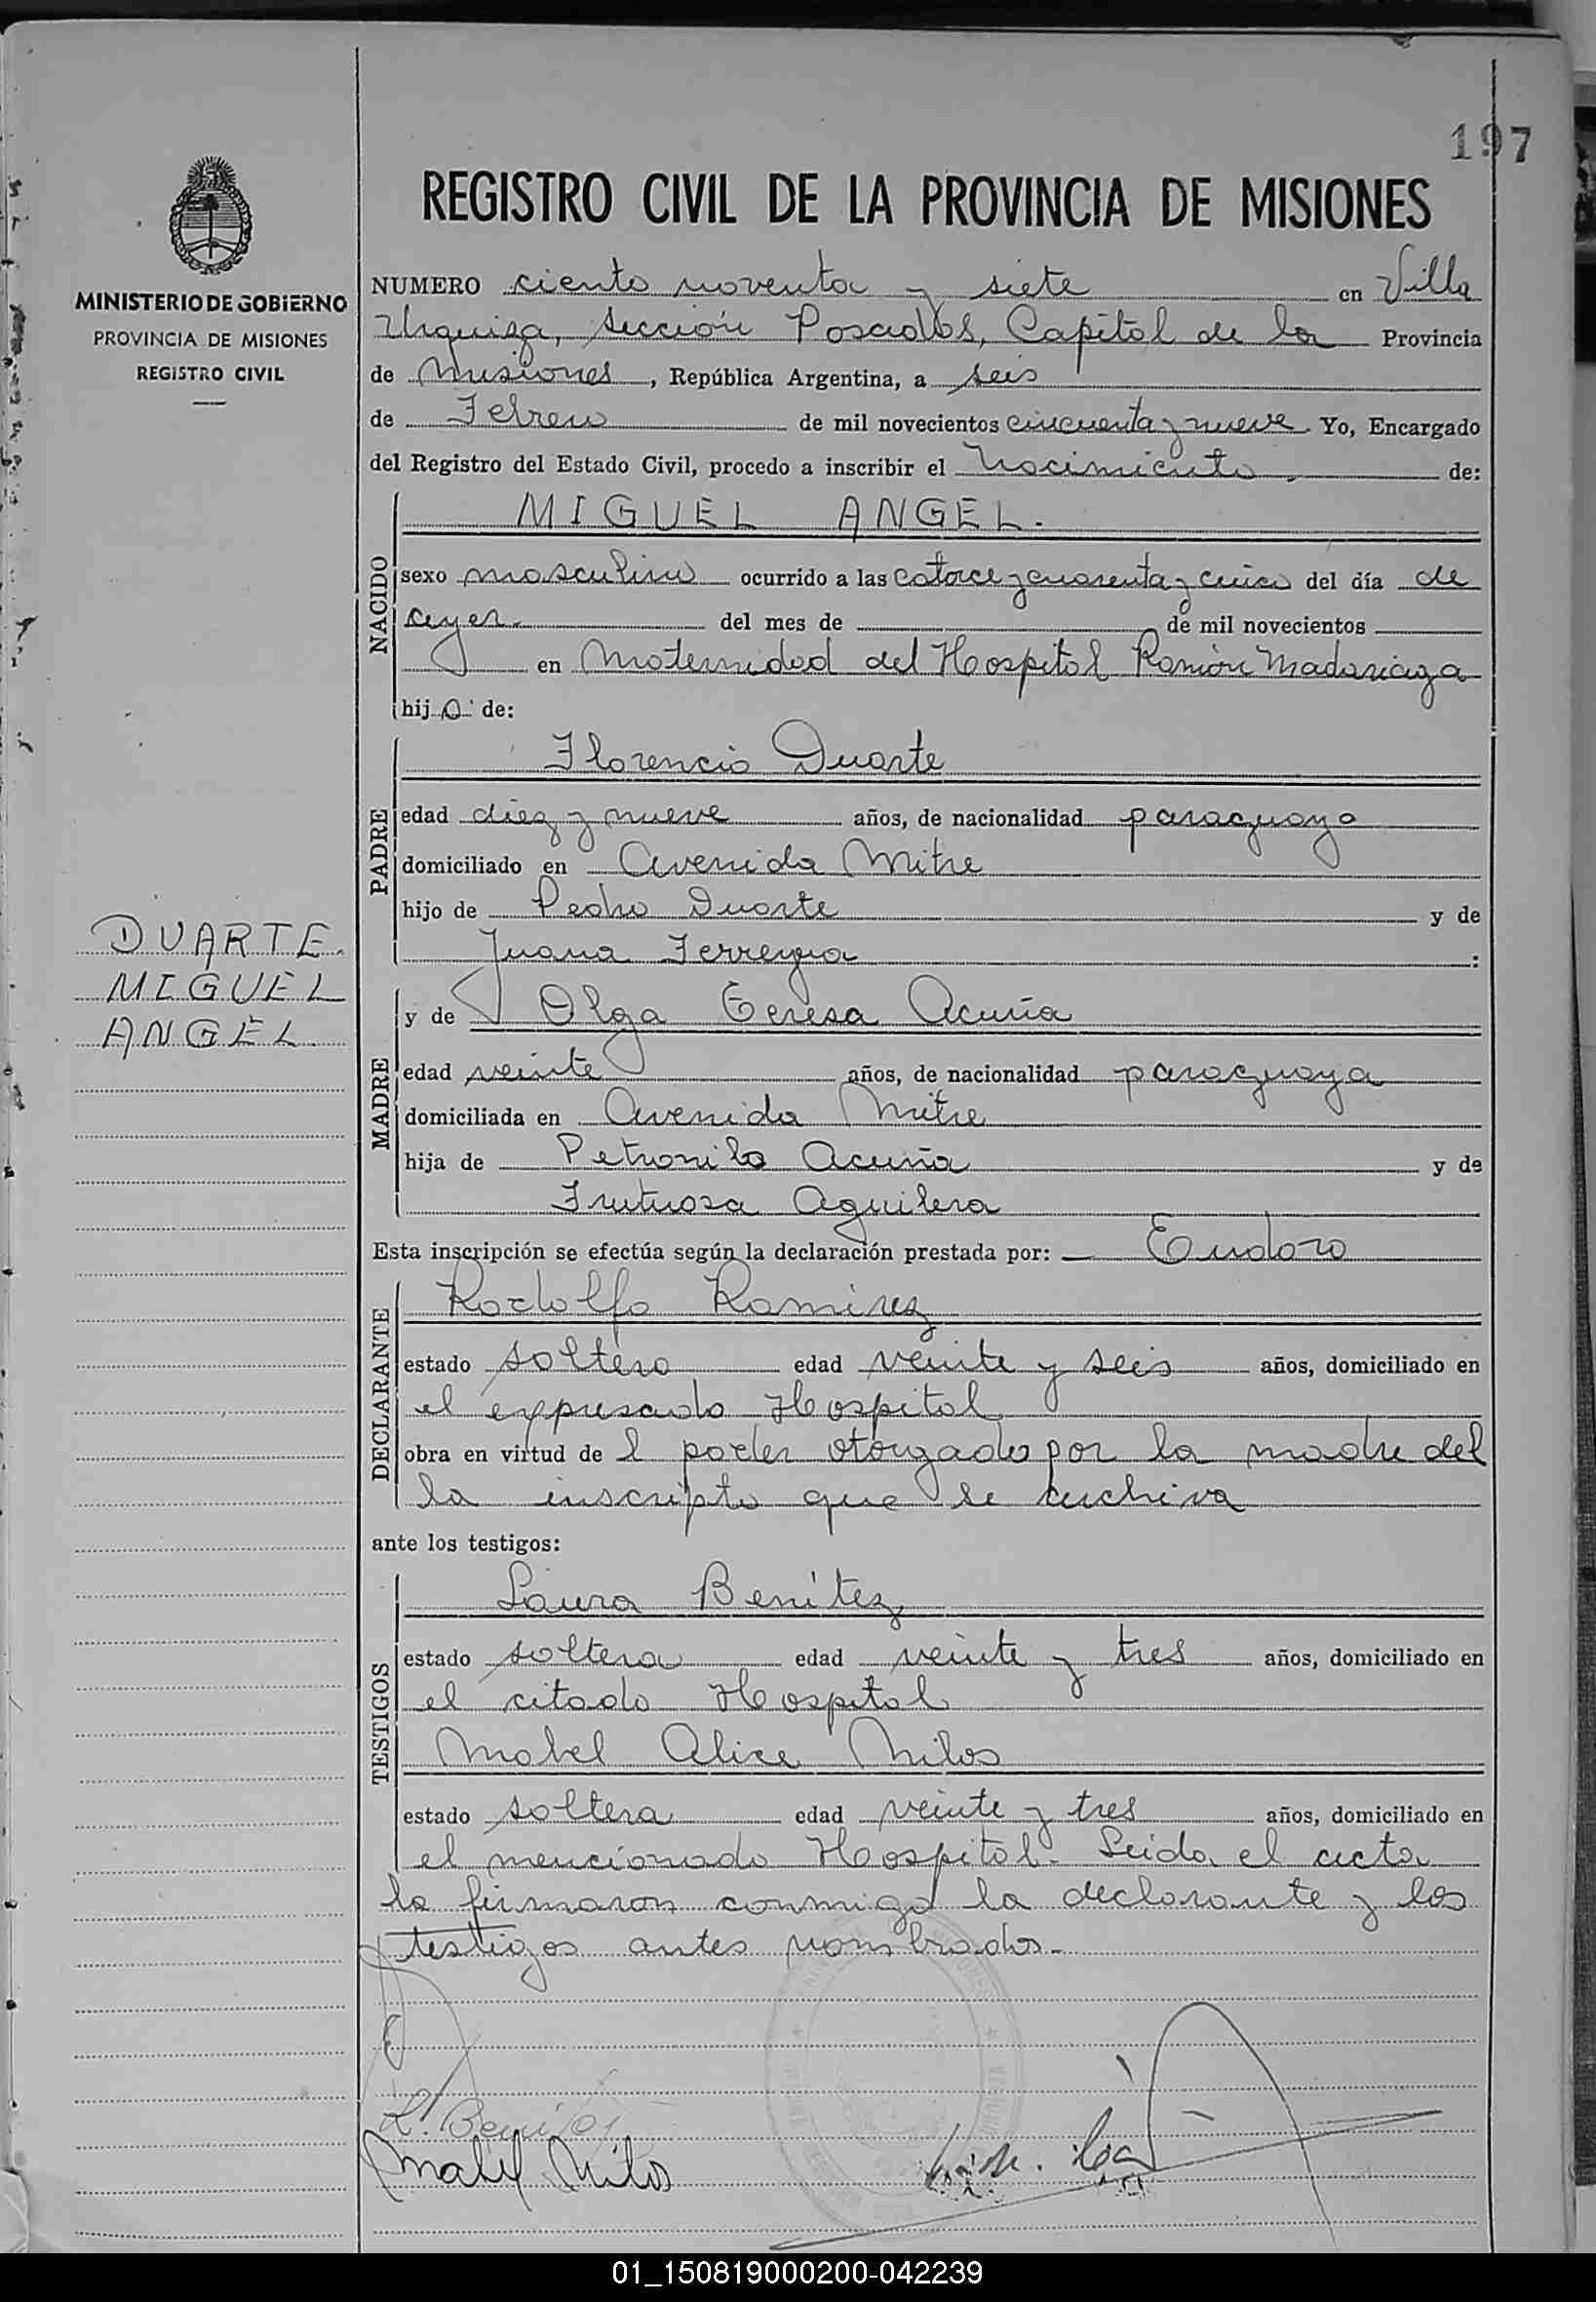 197
REGISTRO CIVIL DE LA PROVINCIA DE MISIONES
MINISTERIO DE GOBIERNO
PROVINCIA DE MISIONES
REGISTRO CIVIL
NUMERO ciento noventa y siete en Villa
Urquiza, sección Posadas, Capital de la Provincia
de Misiones, República Argentina, a seis
de Febrero de mil novecientos cincuenta y nueve. Yo, Encargado
del Registro del Estado Civil, procedo a inscribir el Nacimiento. de:
NACIDO
MIGUEL ANGEL.
sexo masculino ocurrido a las catorce y cuarenta y cinco del día de
ayer. del mes de de mil novecientos
en Maternidad del Hospital Ramón Madariaga
hijo de:
PADRE
Florencio Duarte
edad diez y nueve años, de nacionalidad paraguaya
domiciliado en Avenida Mitre
hijo de Pedro Duarte y de
Juana Ferreyra :
DUARTE.
MIGUEL
ANGEL.
MADRE
y de Olga Teresa Acuña
edad veinte años, de nacionalidad paraguaya
domiciliada en Avenida Mitre
hija de Petronilo Acuña y de
Frutuosa Aguilera
Esta inscripción se efectúa según la declaración prestada por: Eudoro
DECLARANTE
Rodolfo Ramirez
estado soltero edad veinte y seis años, domiciliado en
el expresado Hospital
obra en virtud de l poder otorgado por la madre del
la inscripto que se archiva
ante los testigos:
TESTIGOS
Laura Benítez,
estado soltera edad veinte y tres años, domiciliado en
el citado Hospital
Mabel Alice Milos
estado soltera edad veinte y tres años, domiciliado en
el mencionado Hospital. Leida el acta
la firmaron conmigo la declarante y los
testigos antes nombrados.
L. Benítez
Mabel Milos
01_150819000200-042239